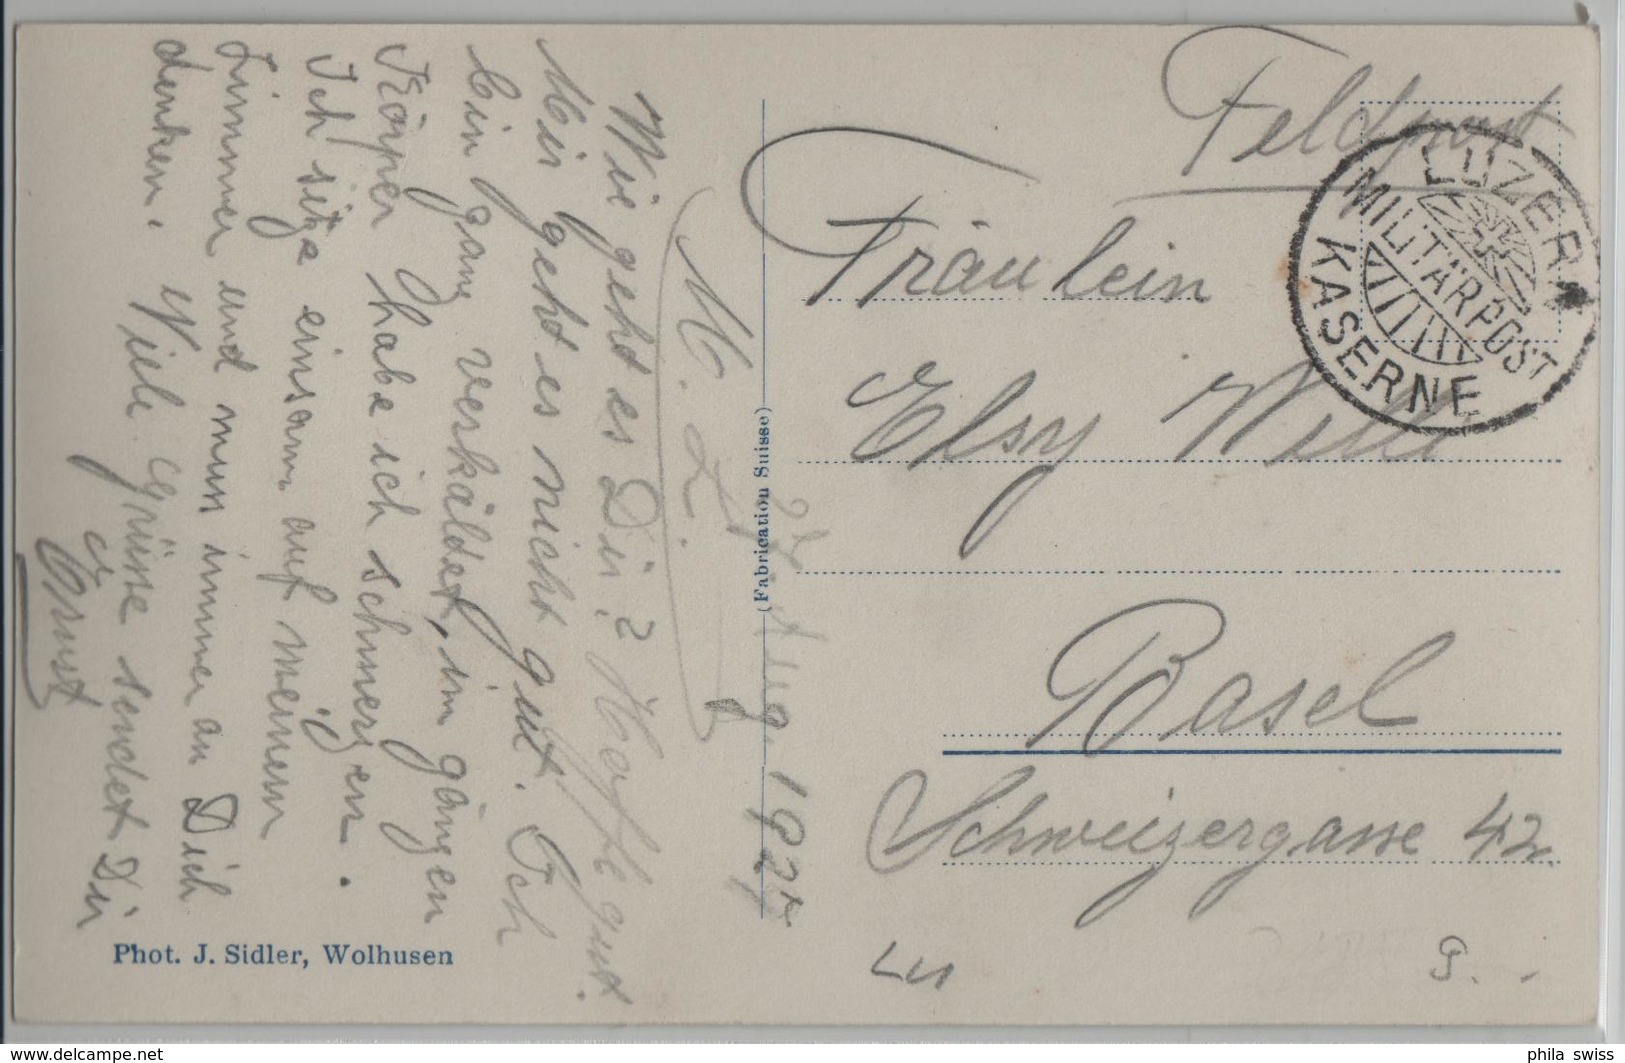 Feldpost
LUZERN
MILITÄRPOST
KASERNE
Fräulein
Elsy Willi
Basel
Schweizergasse 42
Aug. 192
M. L.
Wie geht es Dir? Hoffe gut.
Mir geht es nicht gut. Ich
bin ganz verkäldet, im gangen
Körper habe ich schmerzen.
Ich sitze einsam auf meinem
Zimmer und muss immer an Dich
denken. Viele Grüsse sendet Dir
Ernst
(Fabrication Suisse)
Phot. J. Sidler, Wolhusen
Lu
9. -
www.delcampe.net
phila_swiss